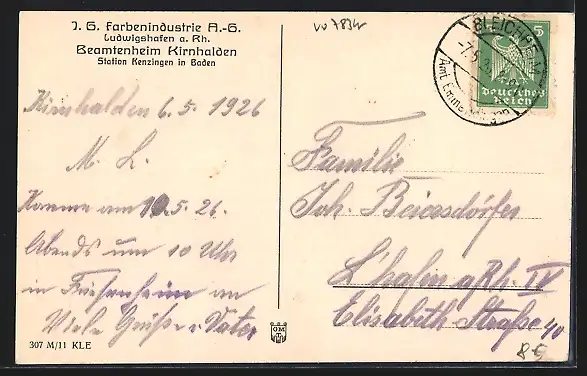 J. G. Farbenindustrie A.-G.
Ludwigshafen a. Rh.
Beamtenheim Kirnhalden
Station Kenzingen in Baden
Kirnhalden 6.5.1926
M. L.
Komme am 10.5.26.
Abends um 10 Uhr
in Friesenheim an
Viele Grüße u. Vater
307 M/11 KLE
5
Deutsches
Reich
BLEICHHE
Familie
Joh. Beiersdörfer
L'hafen a/Rh. IV
Elisabeth Straße 40